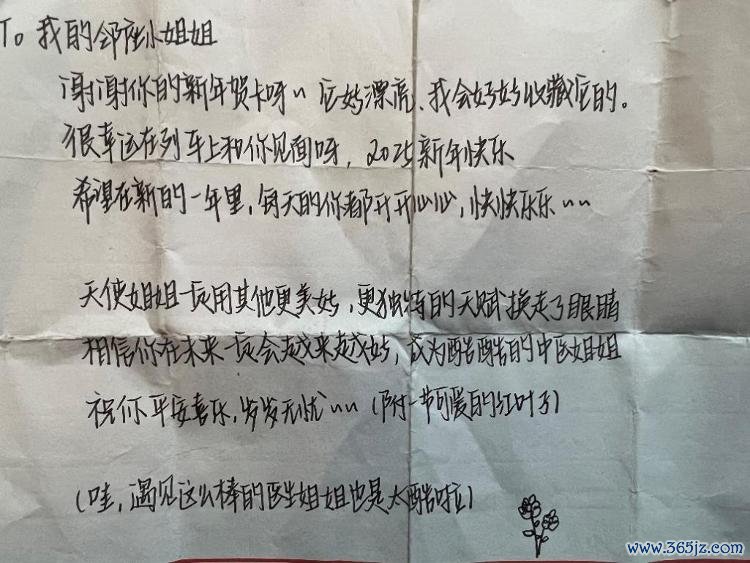 To 我的邻座小姐姐
谢谢你的新年贺卡呀~ 它好漂亮、我会好好收藏它的。
很幸运在列车上和你见面呀，2025新年快乐
希望在新的一年里，每天的你都开开心心，快快乐乐~~
天使姐姐一定用其他更美好，更独特的天赋换走了眼睛
相信你在未来一定会越来越好，成为酷酷的中医姐姐
祝你平安喜乐，岁岁无忧~~（附一节可爱的红叶子）
（哇，遇见这么棒的医生姐姐也是太酷啦）
www.365jz.com